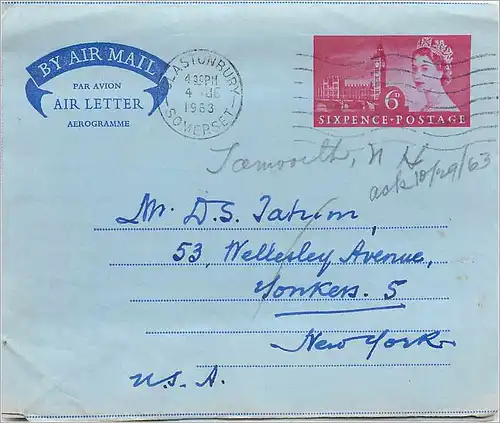 BY AIR MAIL
PAR AVION
AIR LETTER
AEROGRAMME
GLASTONBURY
4 30 PM
4 DEC
1963
SOMERSET
6D
SIXPENCE · POSTAGE
Tamworth, N H
ask 10/29/63
Mr. D.S. Tatum,
53, Wellesley Avenue,
Yonkers. 5
New York
U.S.A.